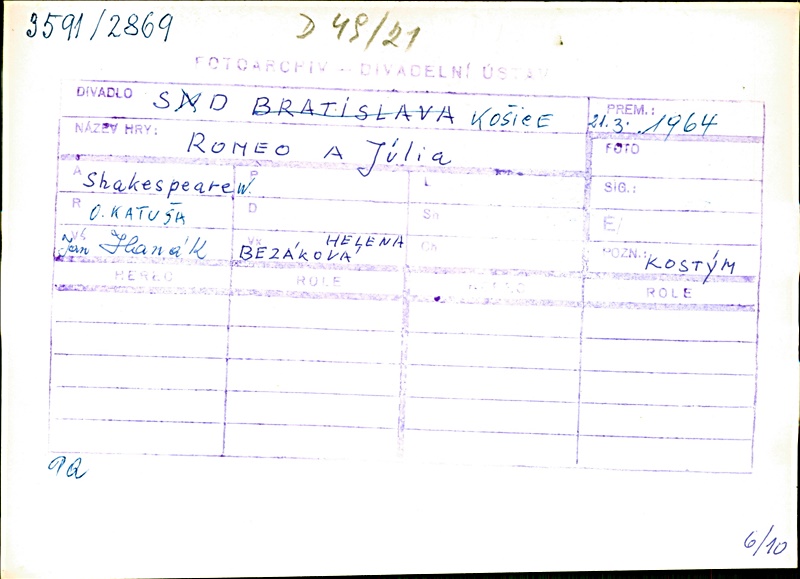 3591/2869
D 49/21
FOTOARCHIV – DIVADELNÍ ÚSTAV
DIVADLO SND BRATISLAVA KOŠICE PREM.: 21.3. 1964
NÁZEV HRY: ROMEO A JÚLIA FOTO
A Shakespeare W. P L SIG.:
R O. KATUŠA D Sn E/
Vý Ján Hanák Vk BEZÁKOVÁ HELENA Ch POZN.: KOSTÝM
HEREC ROLE HEREC ROLE
6/10